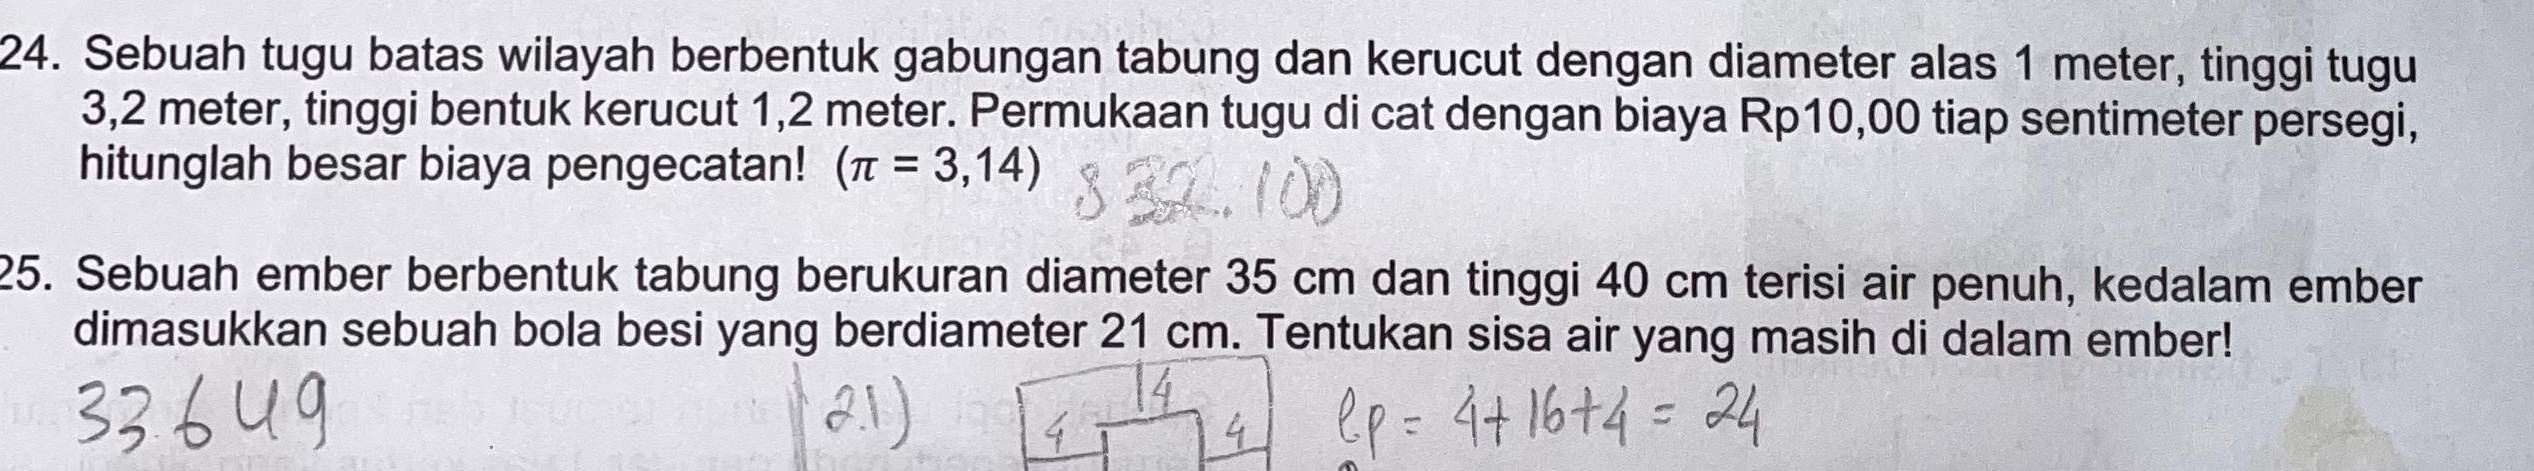 24. Sebuah tugu batas wilayah berbentuk gabungan tabung dan kerucut dengan diameter alas 1 meter, tinggi tugu
3,2 meter, tinggi bentuk kerucut 1,2 meter. Permukaan tugu di cat dengan biaya Rp10,00 tiap sentimeter persegi,
hitunglah besar biaya pengecatan! (π = 3,14) 832.100
25. Sebuah ember berbentuk tabung berukuran diameter 35 cm dan tinggi 40 cm terisi air penuh, kedalam ember
dimasukkan sebuah bola besi yang berdiameter 21 cm. Tentukan sisa air yang masih di dalam ember!
33.649
21)
14
4
4
lp = 4+16+4 = 24